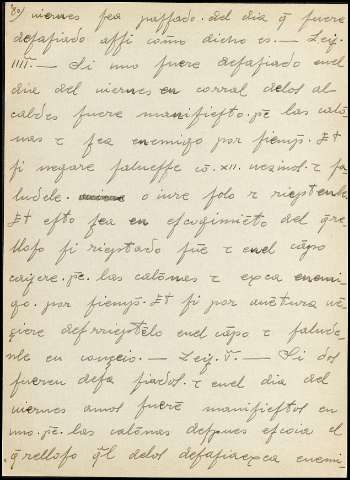 80) viernes sea passado. del dia q̃ fuere
desafiado assi cõmo dicho es. — Leij.
IIII. — Si uno fuere desafiado enel
dia del viernes en corral delos al
caldes fuere manifiesto. pẽ. las calõ
nas τ sea enemigo por siemp̃. Et
si negare salvesse cõ. XII. vezinos. τ sa
ludele. o iure solo τ rieptenle
Et esto sea en escogimiẽto del q̃re
lloso si rieptado fuẽ τ enel cãpo
caijere. pẽ. las calõnas τ exca enemi-
go. por siemp̃. Et si por auẽtura uẽ-
çiere desrrieptẽlo enel cãpo τ salude-
nle en conçeio. — Leij. V. — Si dos
fueren desafiados. τ enel dia del
viernes amos fuerẽ manifiestos en
uno. pẽ. las calõnas despues escoia el
q̃relloso q̃l delos desafia exca enemi-